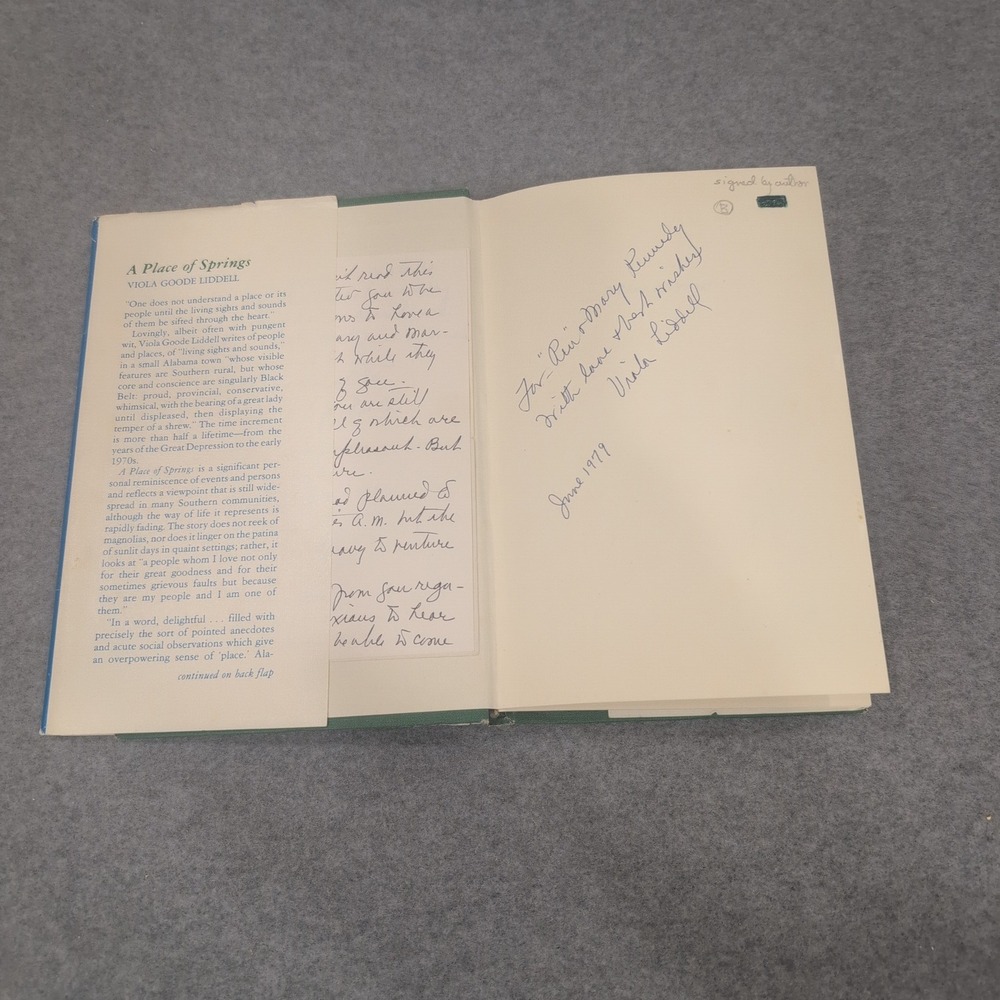 A Place of Springs
VIOLA GOODE LIDDELL
"One does not understand a place or its
people until the living sights and sounds
of them be sifted through the heart."
Lovingly, albeit often with pungent
wit, Viola Goode Liddell writes of people
and places, of "living sights and sounds,"
in a small Alabama town "whose visible
features are Southern rural, but whose
core and conscience are singularly Black
Belt: proud, provincial, conservative,
whimsical, with the bearing of a great lady
until displeased, then displaying the
temper of a shrew." The time increment
is more than half a lifetime—from the
years of the Great Depression to the early
1970s.
A Place of Springs is a significant per-
sonal reminiscence of events and persons
and reflects a viewpoint that is still wide-
spread in many Southern communities,
although the way of life it represents is
rapidly fading. The story does not reek of
magnolias, nor does it linger on the patina
of sunlit days in quaint settings; rather, it
looks at "a people whom I love not only
for their great goodness and for their
sometimes grievous faults but because
they are my people and I am one of
them."
"In a word, delightful . . . filled with
precisely the sort of pointed anecdotes
and acute social observations which give
an overpowering sense of 'place.' Ala-
continued on back flap
read this
you to be
to have a
and Mar-
while they
you are still
which are
But
planned to
A.M. but the
to venture
from you rega-
to hear
be able to come
signed by author
B
For "Ren & Mary Kennedy
With love & best wishes
Viola Liddell
June 1979